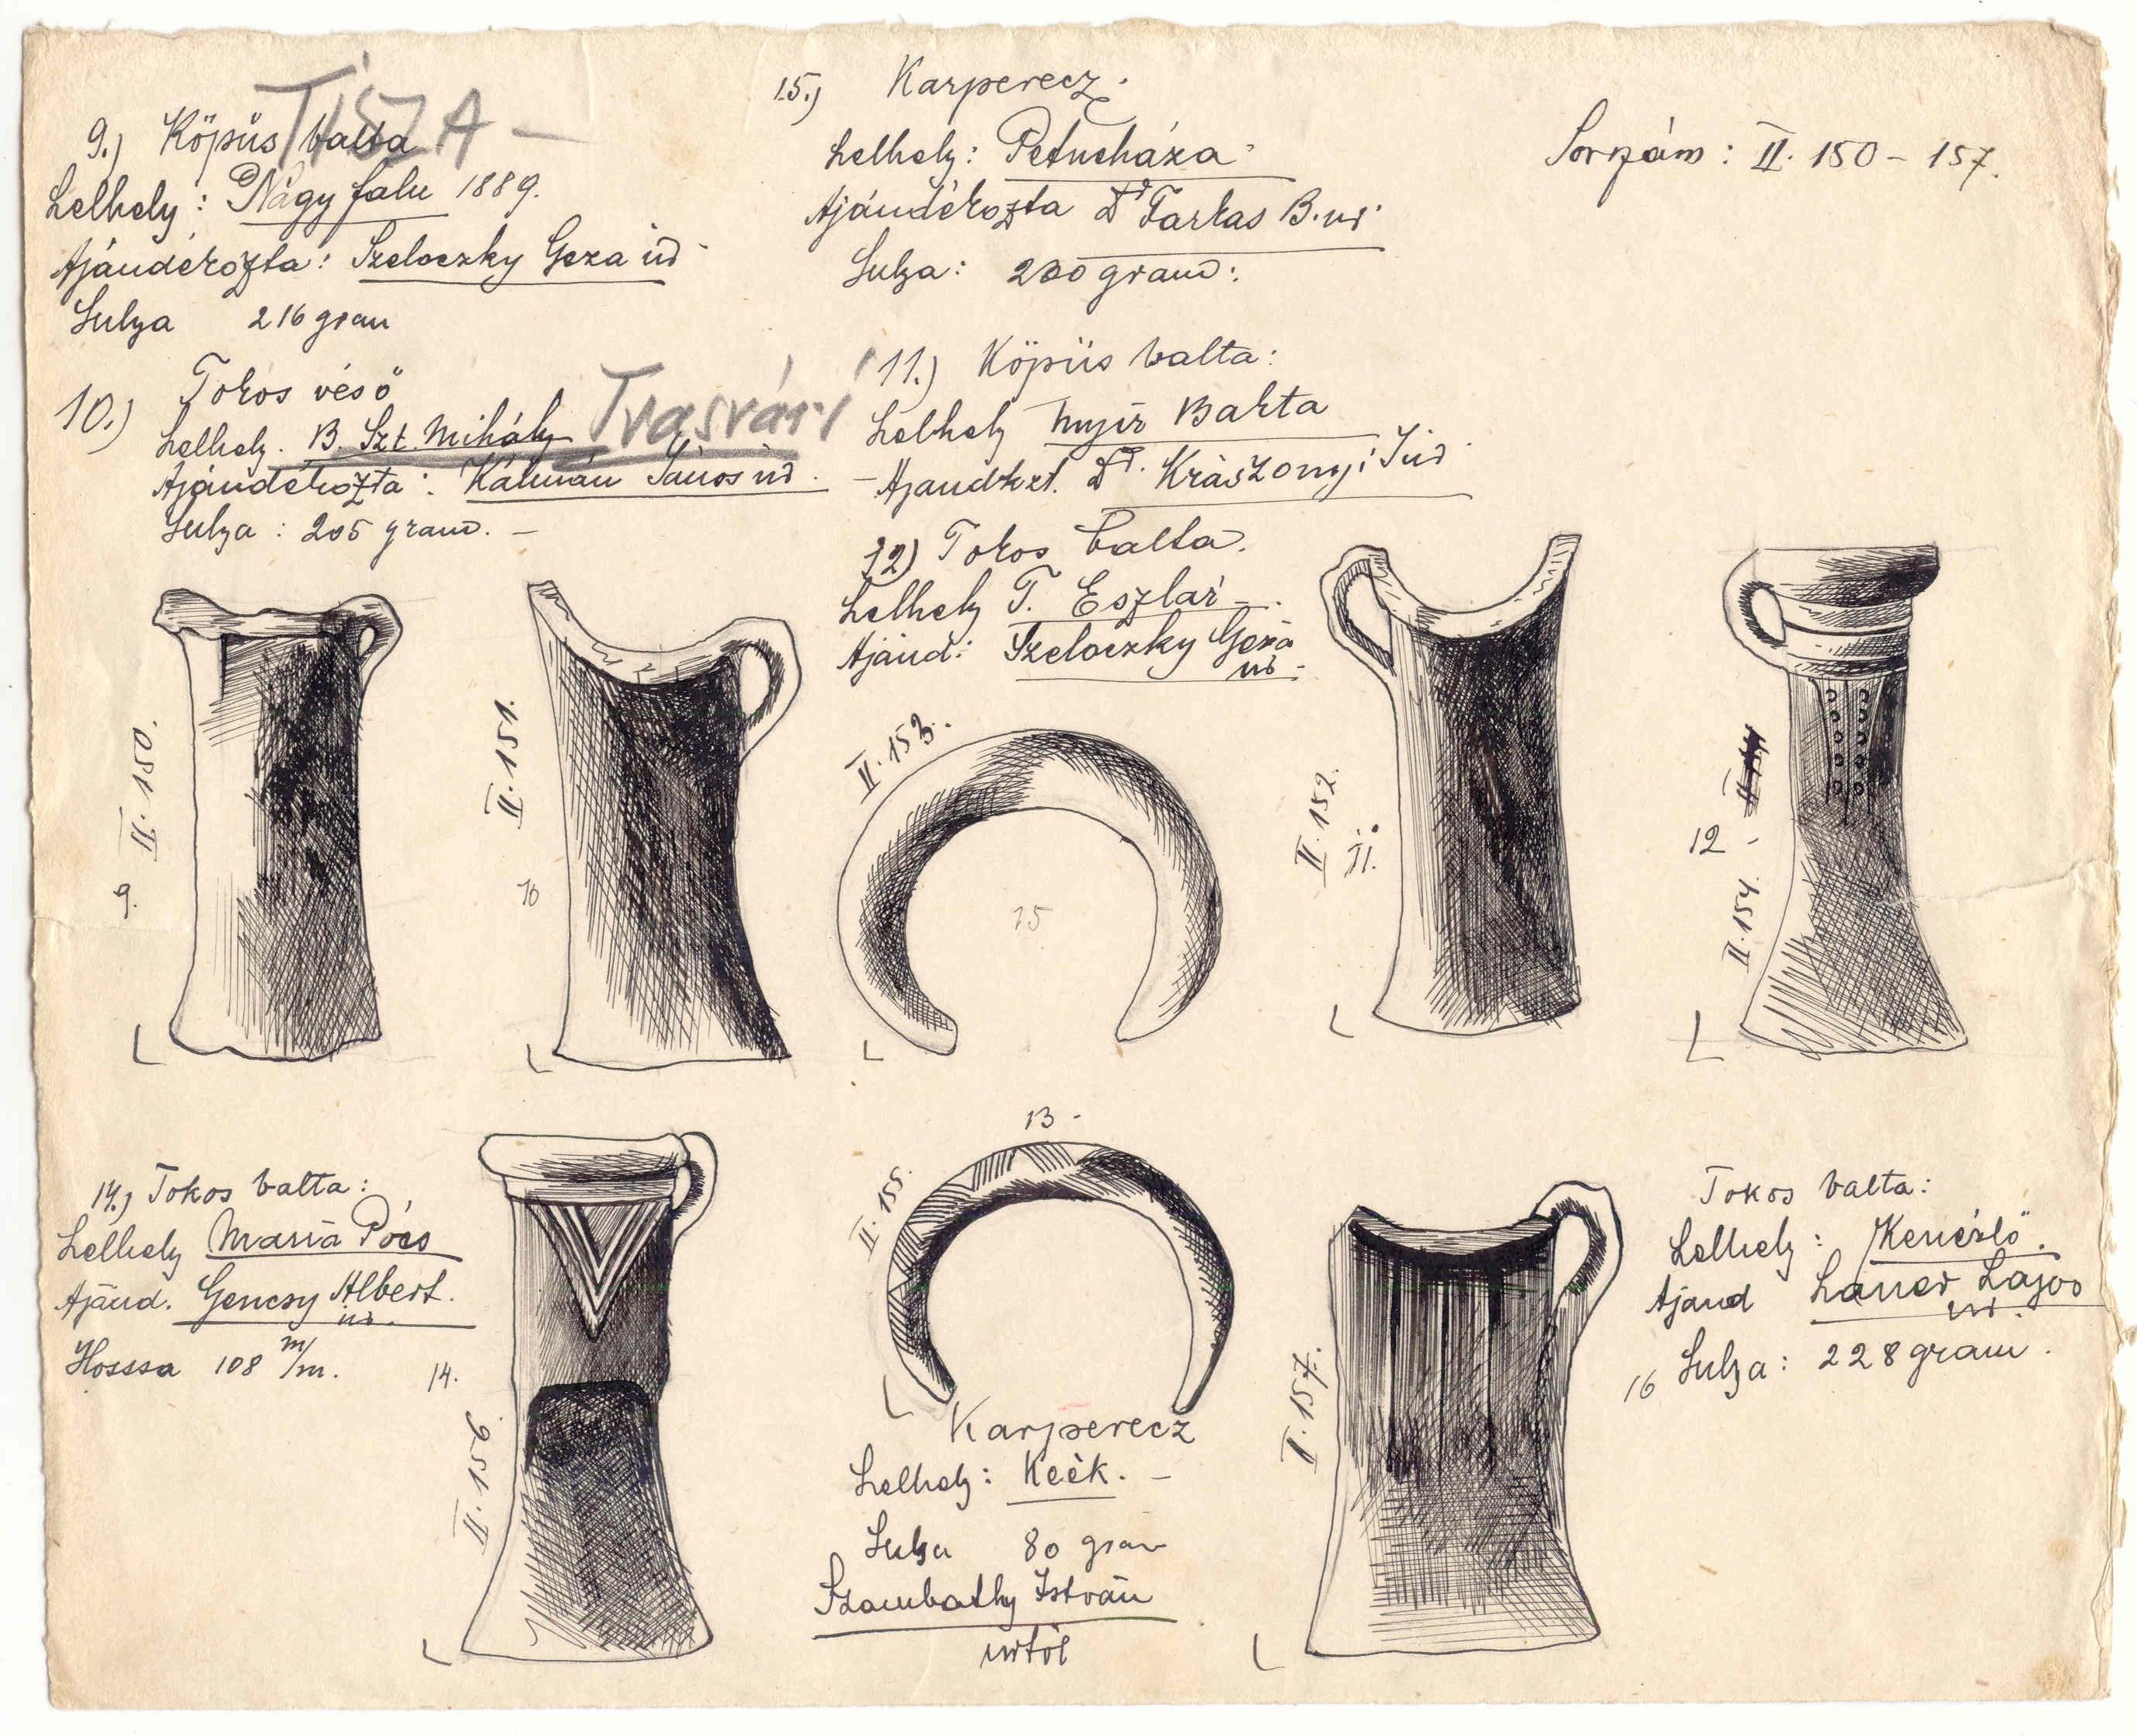 TISZA –
9.) Köpűs balta
Lelhely: Nagy falu 1889.
Ajándékozta: Szeloczky Geza úr
Sulya 216 gram
10.) Tokos véső
Lelhely. B. Szt. Mihály Tvasvári
Ajándékozta: Kálmán János úr.
Sulya: 205 gram. –
15.) Karperecz.
Lelhely: Petneháza
Ajándékozta Dr Farkas B. úr.
Sulya: 200 gram:
Sorszám: II. 150 – 157.
11.) Köpüs balta:
Lelhely Nyir Bakta
Dr. Krasznyi J úr
12) Tokos balta.
Lelhely T. Eszlár –.
Ajánd: Szeloczky Geza
úr –.
II. 150.
9.
II. 151.
10
II. 153.
15
II. 152.
11.
12 –
II. 154.
14.) Tokos balta:
Lelhely Mária Pócs
Ajánd. Gencsy Albert.
úr.
Hossza 108 m/m.
14.
II. 156.
13 –
II. 155.
Karperecz
Lelhely: Keék. –
Sulya 80 gram
Szombathy István
úrtól
II. 157.
Tokos balta:
Lelhely: Kenézlő.
Ajand Laner Lajos
úr.
16 Sulya: 228 gram.